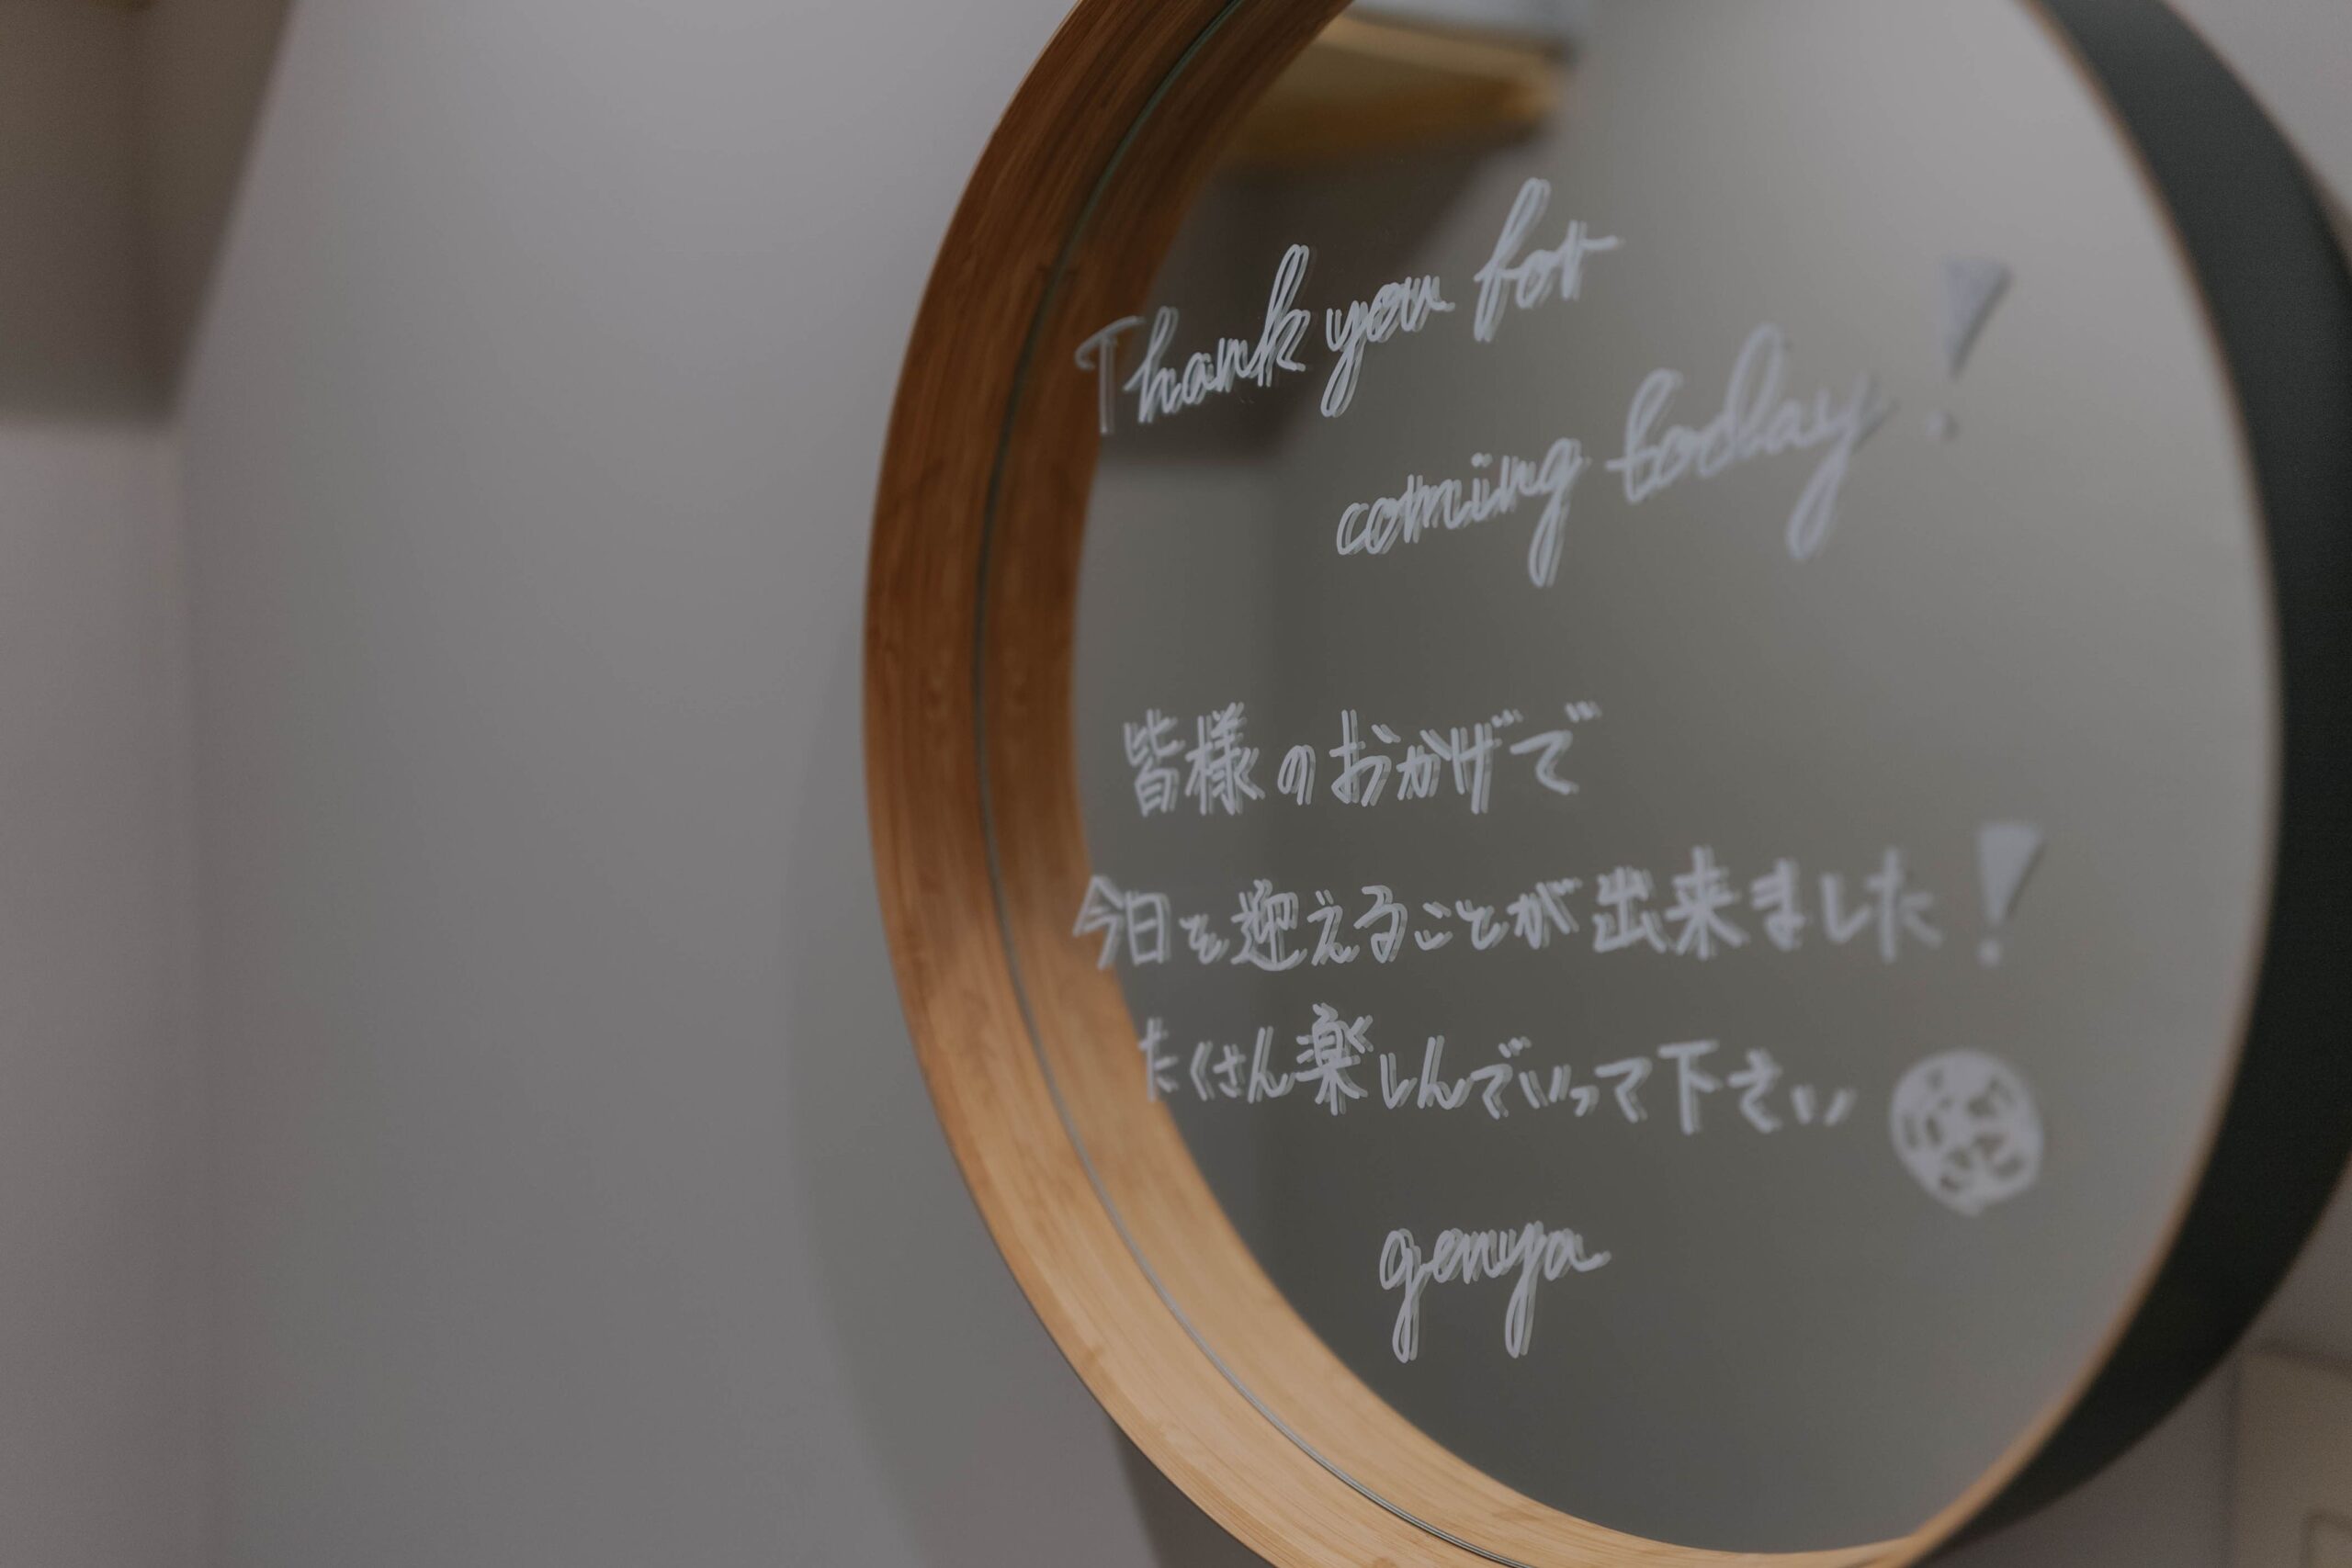 Thank you for
coming today!
皆様のおかげで
今日を迎えることが出来ました!
たくさん楽しんでいって下さい
genya